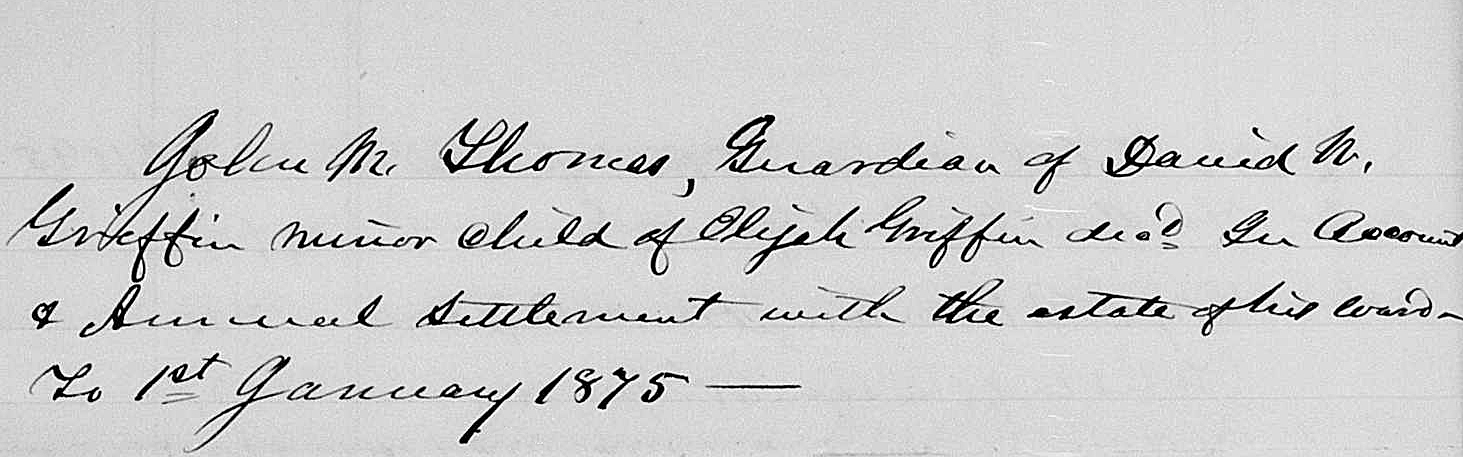 John M. Thomas, Guardian of David W.
Grieffin minor child of Elijah Griffin decd In Account
& Annual Settlement with the estate of his ward—
To 1st January 1875 —